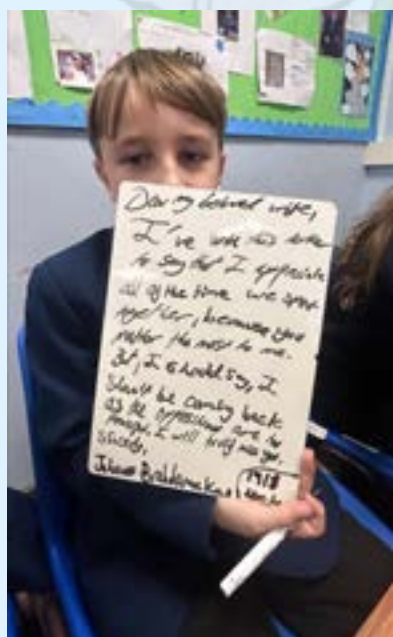 Dear my beloved wife,
I've wrote this letter
to say that I appreciate
all of the time we spent
together, because you
matter the most to me.
But, I should say, I
shan't be coming back
as the are too
I will truly miss you.
Sincerely,
1918